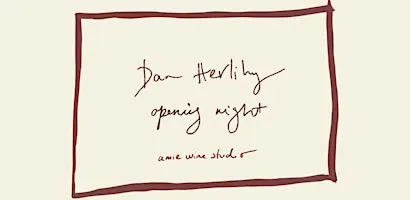 Dan Herlihy
opening night
amie wine studio